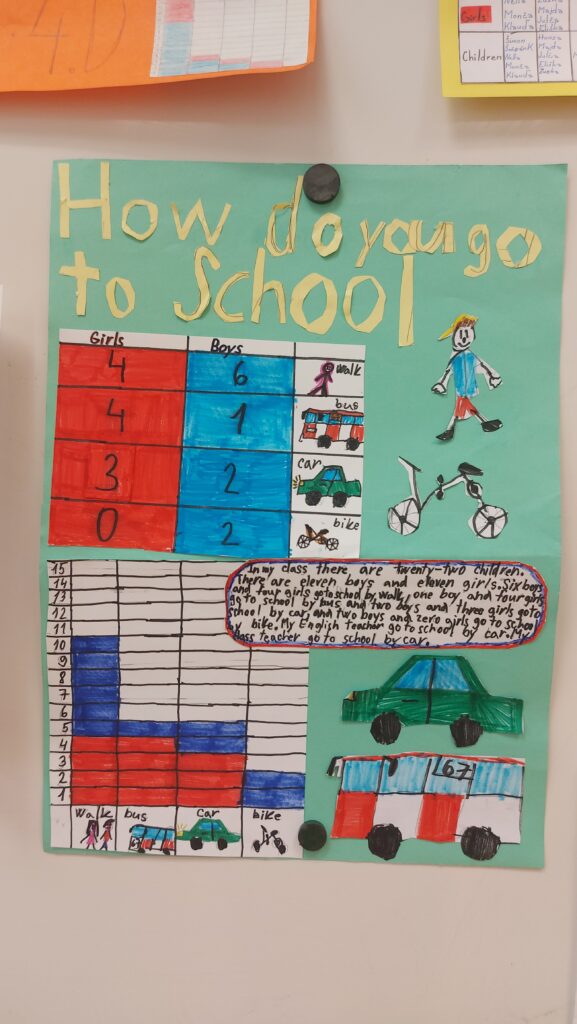 4.D
Girls
Children
Monča
Klaudz
Majda
How do you go
to School
Girls Boys
4 6 walk
4 1 bus
3 2 car
0 2 bike
In my class there are twenty-two children.
There are eleven boys and eleven girls. Six boys
and four girls go to school by walk, one boy and four girls
go to school by bus and two boys and three girls go to
school by car, and two boys and zero girls go to school
by bike. My English teacher go to school by car. My
class teacher go to school by car.
15
14
13
12
11
10
9
8
7
6
5
4
3
2
1
walk bus car bike
67